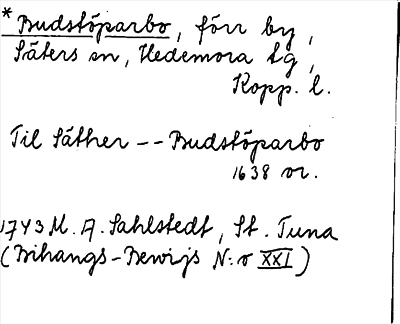 * Budstöparbo, förr by,
Säters sn, Hedemora tg,
Kopp. l.
Til Säther -- Budstöparbo
1638 or.
1743 M. A. Sahlstedt, St. Tuna
(Bihangs-Bewijs N:o XXI)